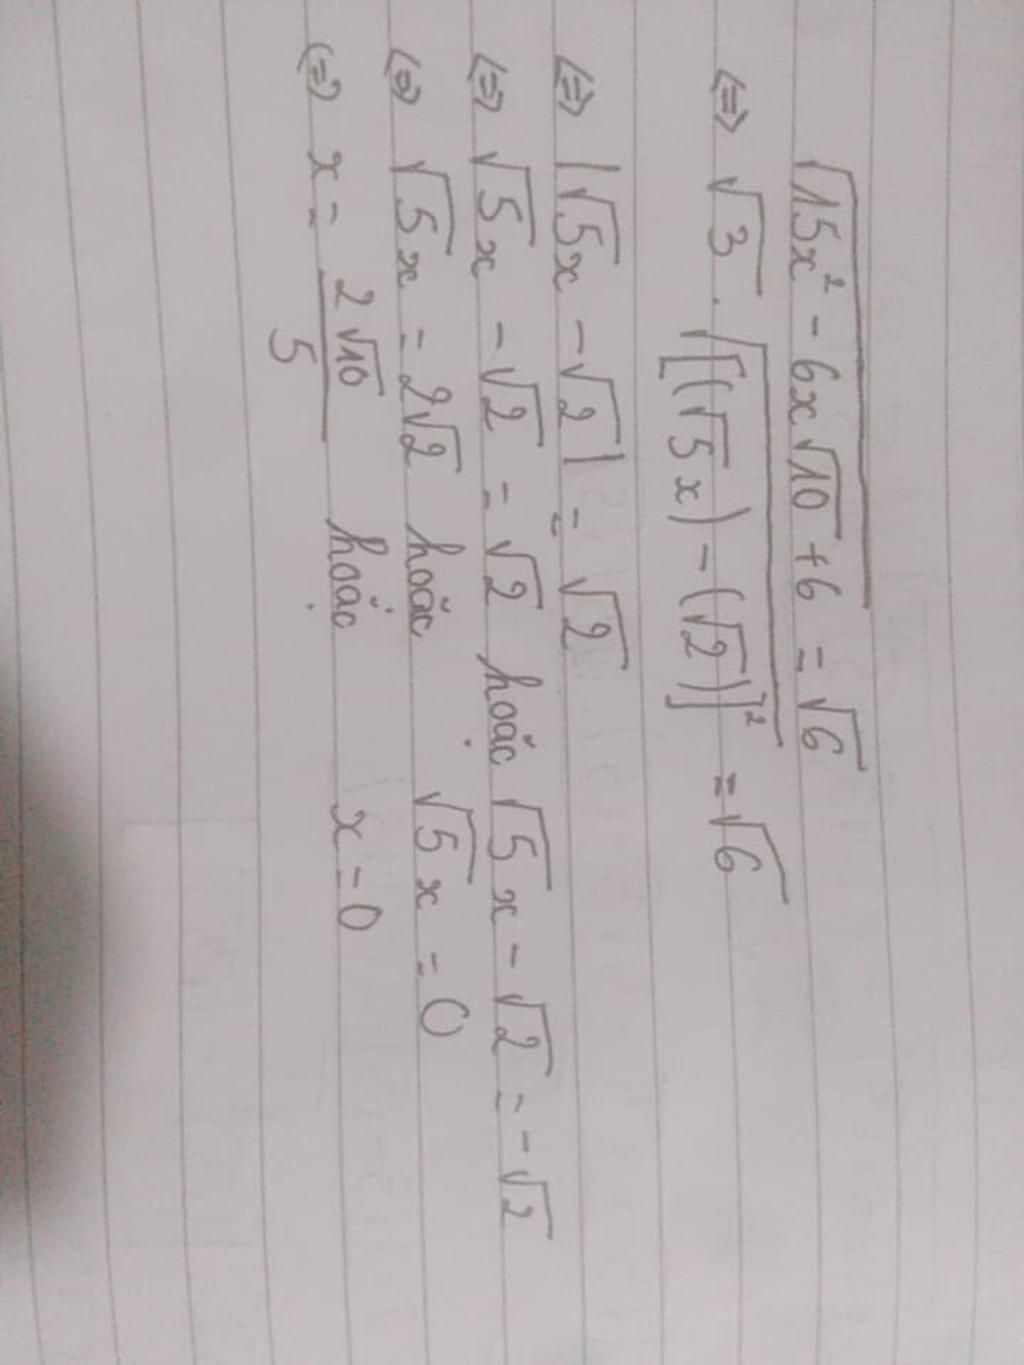 √(15x² - 6x√10 + 6) = √6
⇔ √3 . √([(√5x) - (√2)]²) = √6
⇔ |√5x - √2| = √2
⇔ √5x - √2 = √2 hoặc √5x - √2 = -√2
⇔ √5x = 2√2 hoặc √5x = 0
⇔ x = 2√10/5 hoặc x = 0